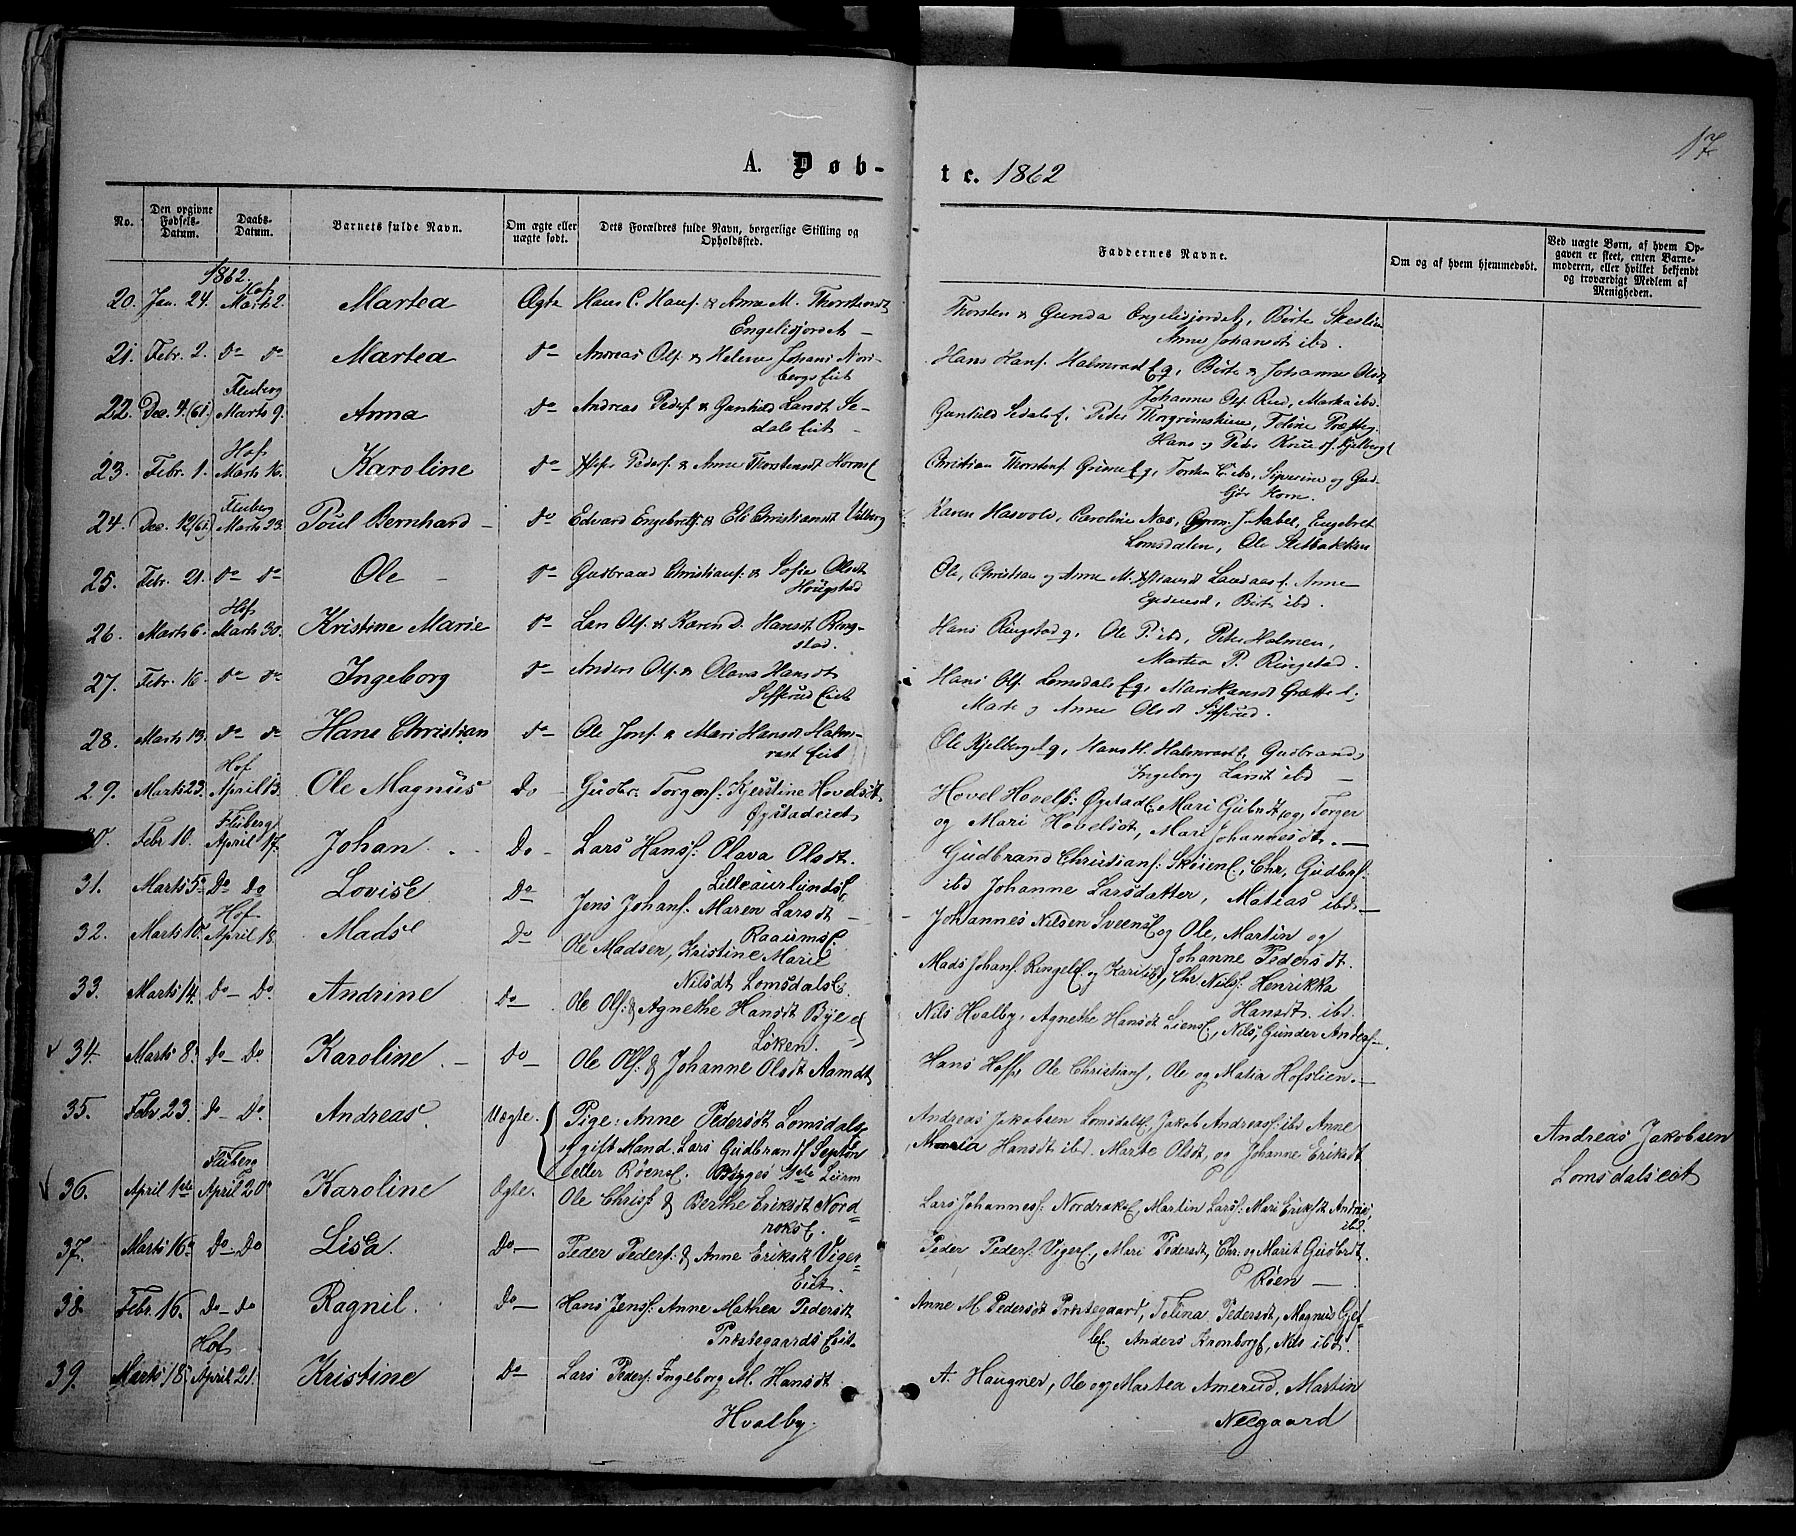 17
A. Døb-
te. 1862
No.
Den opgivne Fødsels-Datum.
Daabs-Datum.
Barnets fulde Navn.
Om ægte eller uægte født.
Dets Forældres fulde Navn, borgerlige Stilling og Opholdssted.
Faddernes Navne.
Om og af hvem hjemmedøbt.
Ved uægte Børn, af hvem Opgaven er skeet, enten Barnemoderen, eller hvilket bekjendt og troværdigt Medlem af Menigheden.
1862.
20. Jan. 24. Hof Marts 2. Martea Ægte Hans C. Hans. & Anne M. Thorstensdt
Engelisjordet
Thorsten & Gunda Engelisjordet, Birte
Anne Johansdt ibd.
21. Febr. 2. do do Martea do Andreas Ols. & Helene Johans
Hans Hans. Halmrast E. g, Birte & Johanne Olsdt
22. Dec. 4. (61) Fluberg Marts 9. Anna do Andreas Peders. & Gunhild Larsdt
Johannes Ols. Rud, Marka ibd.
23. Febr. 1. Hof Marts 16. Karoline do Peders. & Anne Thorstensdt
Hans og Peder
Christian Thorstens.
24. Dec. 12 (61) Fluberg Marts 23. Poul Bernhard do Edvard Engebrets. & Eli Christiansdt Vilberg
Karen Hasvold, Caroline Næs, Engebret
Lomsdalen, Ole
25. Febr. 21. do do Ole do Gudbrand Christians. & Sofie Olsdt
Høugstad
Ole, Christian og Anne M.
Birte ibd.
26. Marts 6. Hof Marts 30. Kristine Marie do Lars Ols. & Karen D. Hansdt Ring-
stad.
Hans Ringstad g, Ole P. ibd, Peter Halmen,
Martea P. Ringstad.
27. Febr. 16 do do Ingeborg do Anders Ols. & Olava Hansdt
Hans Ols. Lomsdals E. g, Mari Hansdt
Marte og Anne Olsdt
28. Marts 13. do do Hans Christian do Ole Jons. & Mari Hansdt Halm-
rast Eiet
Ole Kjelberg E. g, Hans H. Halmrast E, Gudbrand,
Ingeborg Larsdt ibd
29. Marts 23. Hof April 13. Ole Magnus Do Gudbr. Torgers. Kjerstine Hovelsdt
Øystadeiet
Hovel Hovels: Øystad E. Mari Gubrdt og Torger
og Mari Hovelsdt, Mari Johannesdt.
30. Febr 10. Fluberg April 17. Johan Do Lars Hans. Olava Olsdt.
Lilleaurlunds E.
Gudbrand Christians: Skøien E, Chr. Gudbr.
ibd Johanne Larsdatter, Matias ibd.
31. Marts 5 Do Do Lovise Do Jens Johans. Maren Larsdt
Raaums E.
Johannes Nilsen Sveens E og Ole, Martin og
Johanne Pedersdt.
32. Marts 10. Hof April 18. Mads Do Ole Madsen, Kristine Marie
Nilsdt Lomsdals E.
Mads Johans. Ringel E. og Kari ibd, Chr Nils. Henrikka
Hansdt ibd.
33. Marts 14. Do Do. Andrine Do Ole Ols: & Agnethe Hansdt Bye
Løken.
Nils Hvalby, Agnethe Hansdt Liens E, Nils, Gunder Anders.
34. Marts 8. Do Do Karoline. Do Ole Ols. & Johanne Olsdt Aamdt
Hans Hoff, Ole Christians, Ole og Matia Hofslien.
35. Febr 23. Do Do. Andreas. Uægte. Pige: Anne Pedersdt Lomsdals E
og gift Mand. Lars Gudbrands.
eller Røens E.
Andreas Jakobsen Lomsdal E, Jakob Andreas: ibd Anne
Maria Hansdt ibd. Marte Olsdt, og Johanne Eriksdt
Andreas Jakobsen
Lomsdalseiet
36. April 1ste Fluberg April 20 Karoline Ægte. Ole Christ. & Berthe Eriksdt Nord=
roks E.
Lars Johannes: Nordroks E, Martin Lars. Mari Eriksdt Andrea,
ibd.
37. Marts 16. Do Do Lisa. Do Peder Peders: & Anne Eriksdt Viger=
Eiet.
Peder Peders. Viger E, Mari Pedersdt, Chr: og Marit Gudbrdt.
Røen
38. Febr. 16. Do Do Ragnil. Do Hans Jens. Anne Mathea Pedersdt
Præstegaards Eiet.
Anne M Pedersdt Præstegaard, Telina Pedersdt, Magnus
Anders Kronborg E, Nils ibd.
39. Marts 18. Hof April 21. Kristine Do Lars Peders. Ingeborg M. Hansdt
Hvalby.
A. Haugner, Ole og Martea Amerud, Martin
Neegaard